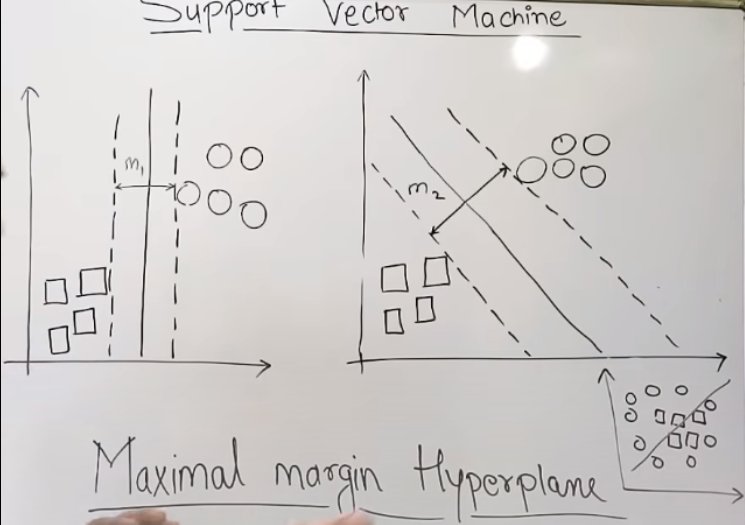 Support Vector Machine
m1
m2
Maximal margin Hyperplane